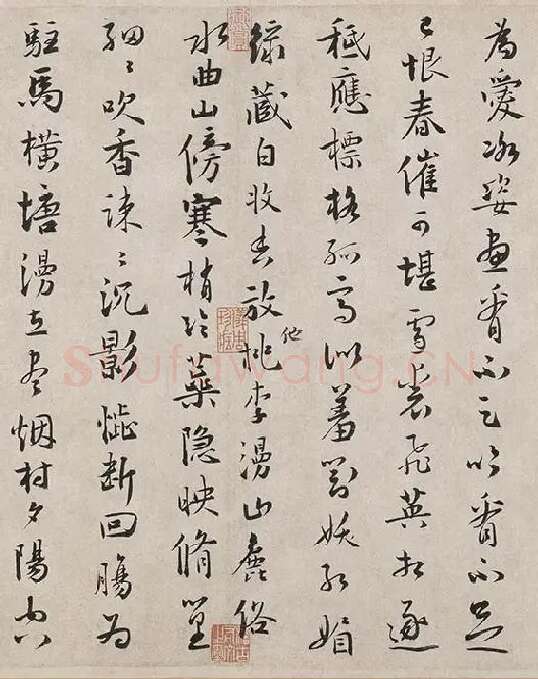 為愛冰姿畫看不足吟看不足
已恨春催可堪雪裏飛英相逐
祗應標格孤高似羞對妖紅媚
綠藏白收香放他桃李漫山麁俗
水曲山傍寒梢冷蘂隱映脩篁
細〻吹香疎〻沉影惱斷回腸為
駐馬橫塘漫立盡烟村夕陽空
Shufawang.CN